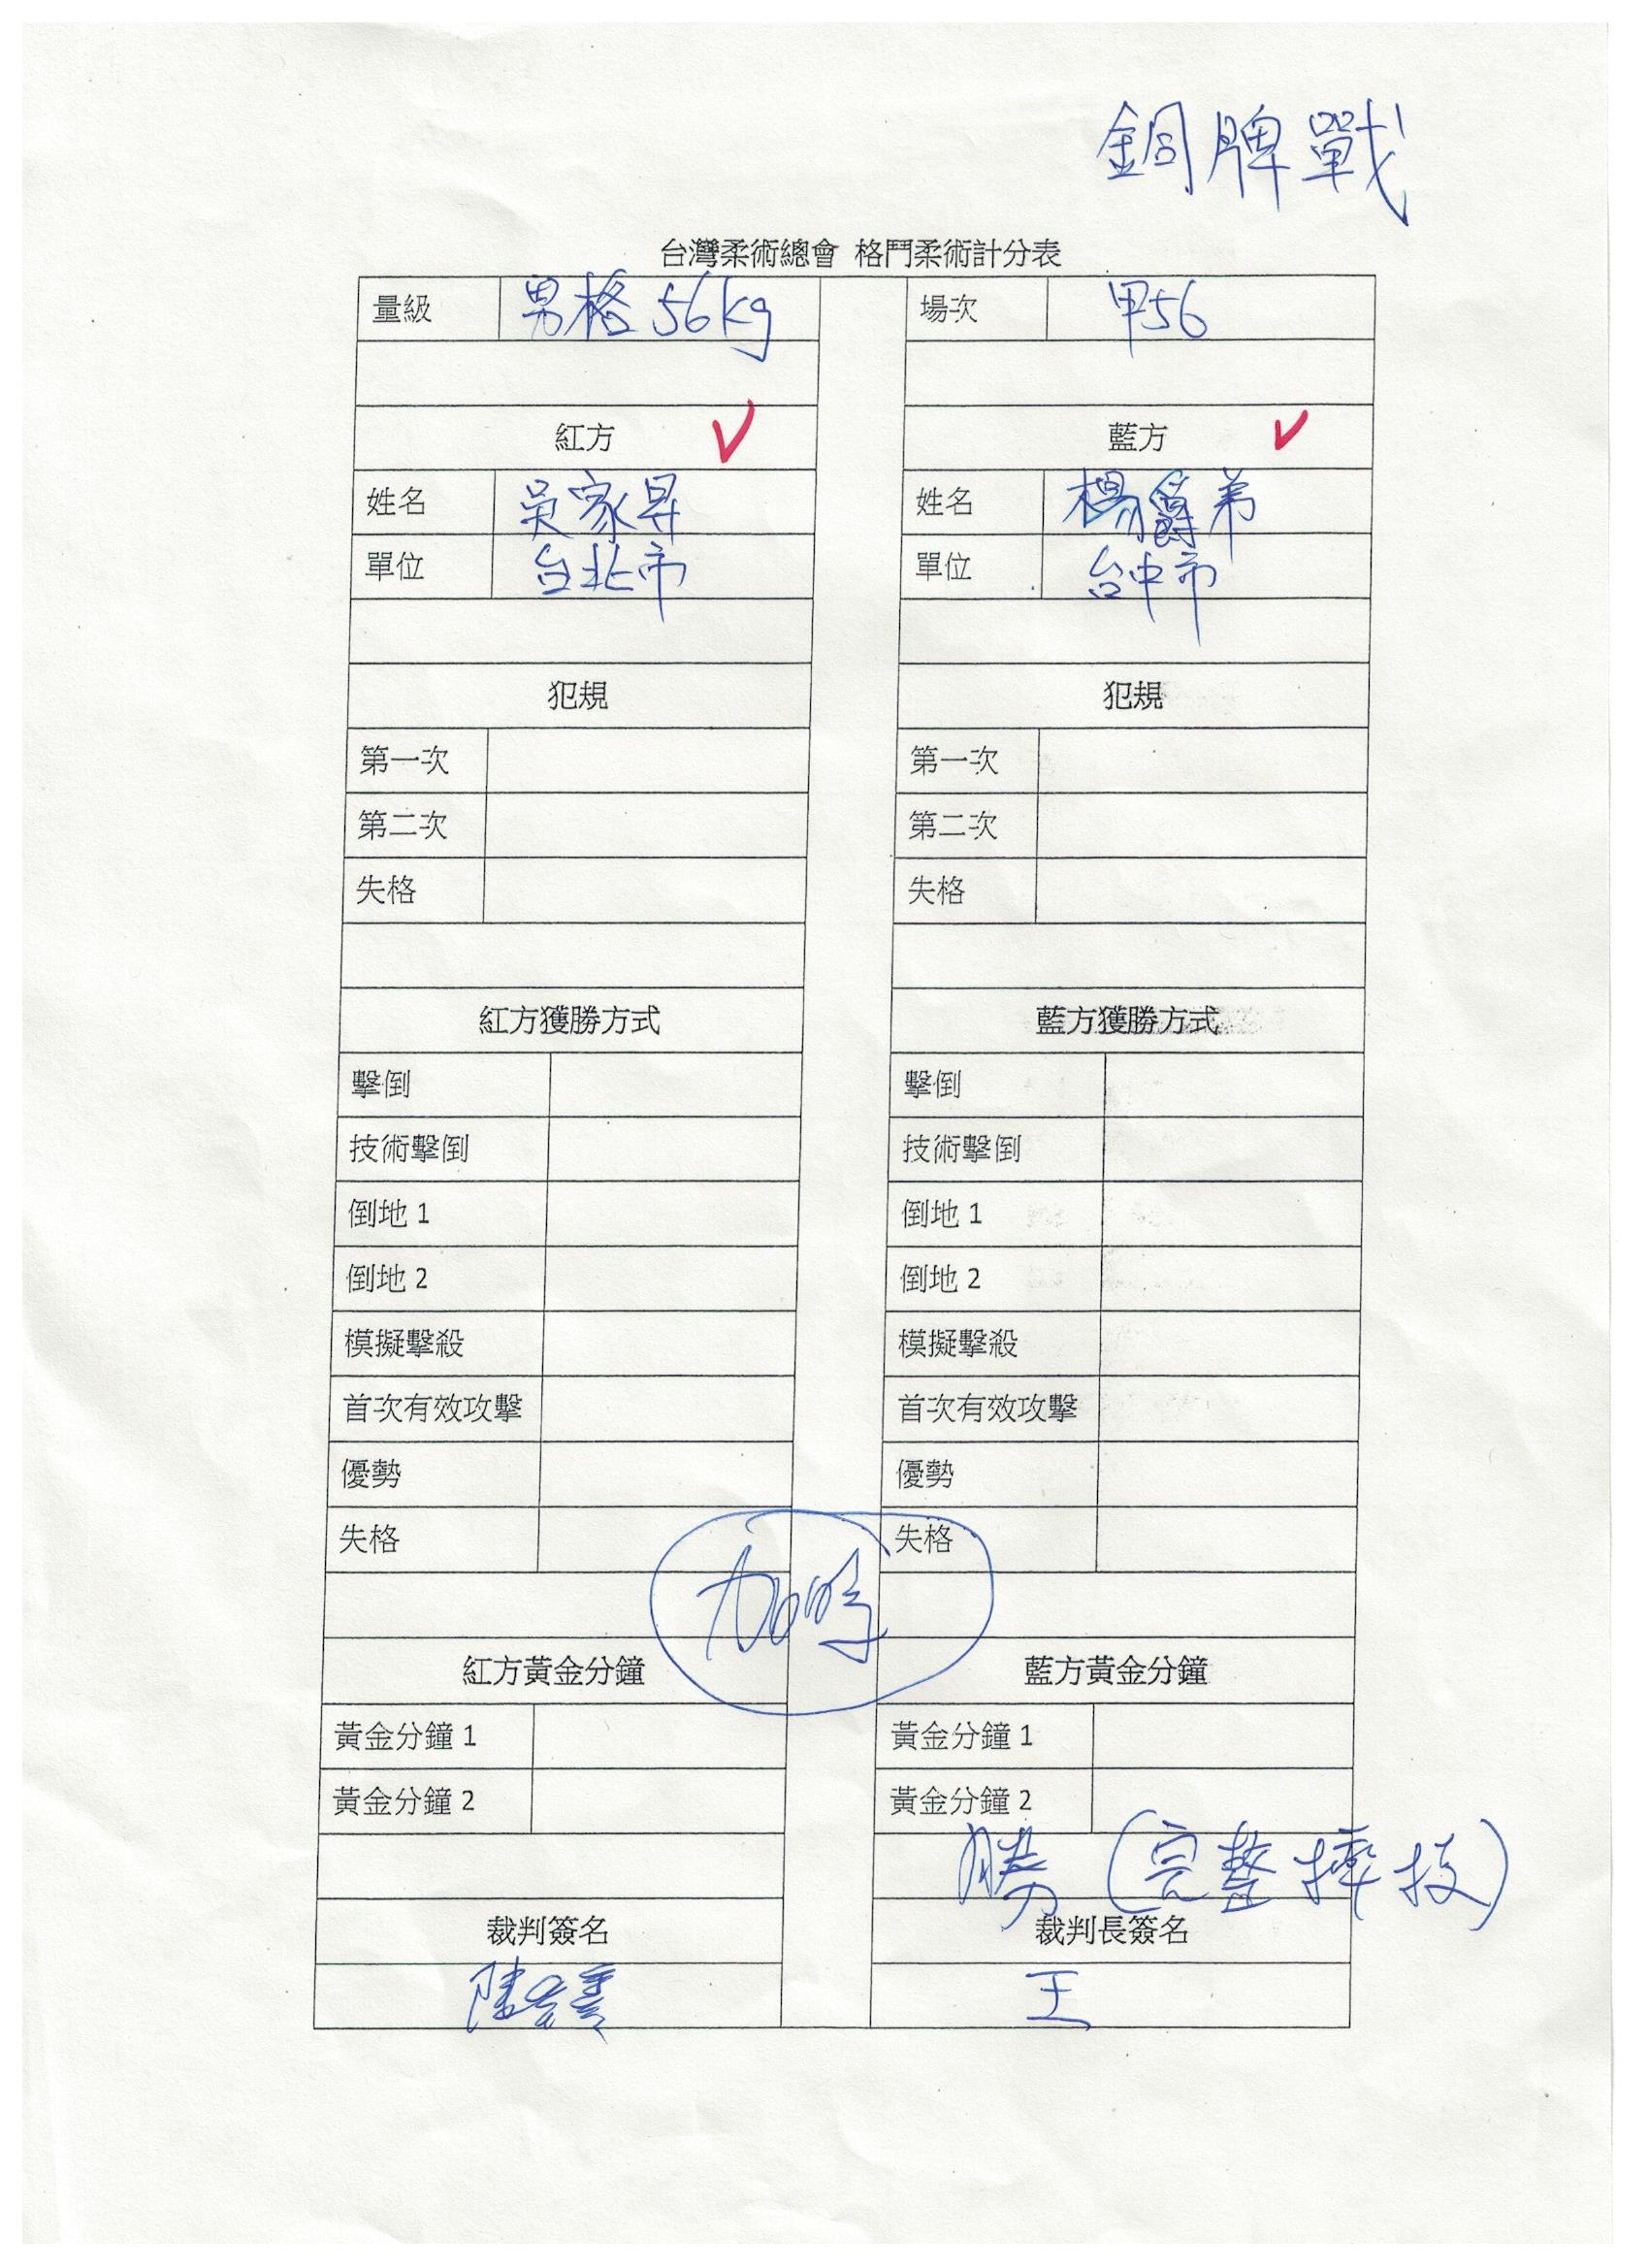 銅牌戰
台灣柔術總會 格鬥柔術計分表
量級 男格 56kg 場次 甲56
紅方 藍方
姓名 吳家昇 姓名 楊爵弟
單位 台北市 單位 台中市
犯規 犯規
第一次 第一次
第二次 第二次
失格 失格
紅方獲勝方式 藍方獲勝方式
擊倒 擊倒
技術擊倒 技術擊倒
倒地 1 倒地 1
倒地 2 倒地 2
模擬擊殺 模擬擊殺
首次有效攻擊 首次有效攻擊
優勢 優勢
失格 失格
加時
紅方黃金分鐘 藍方黃金分鐘
黃金分鐘 1 黃金分鐘 1
黃金分鐘 2 黃金分鐘 2
勝 (完整摔技)
裁判簽名 裁判長簽名
王